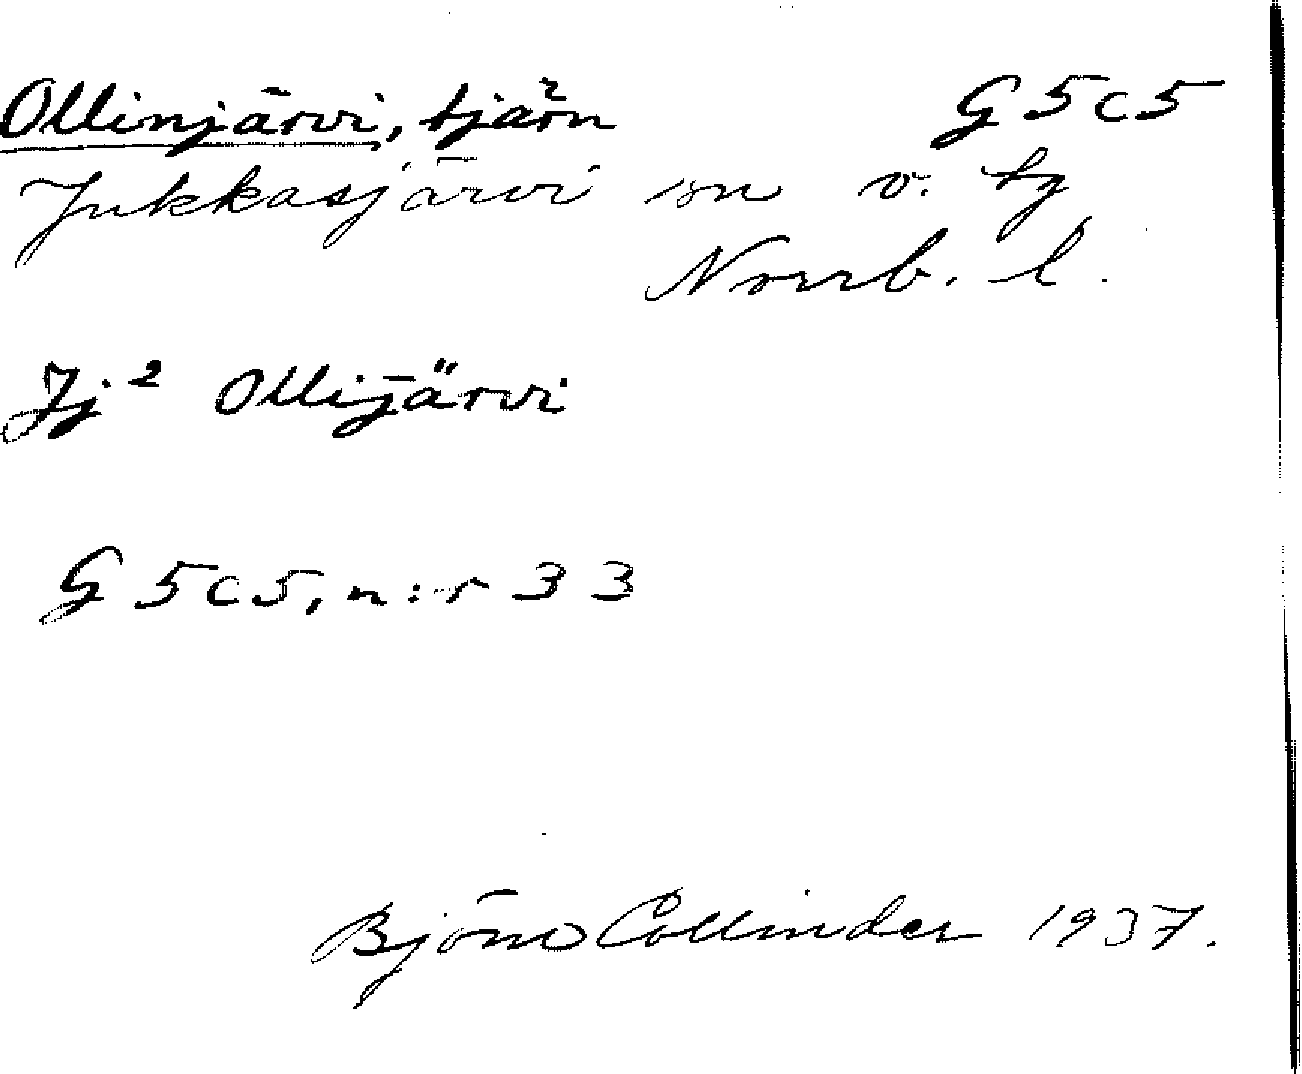 Ollinjärvi, tjärn G5c5
Jukkasjärvi sn v. tg
Norrb. l.
Jj² Ollijärvi
G5c5, n:r 33
Björn Collinder 1937.